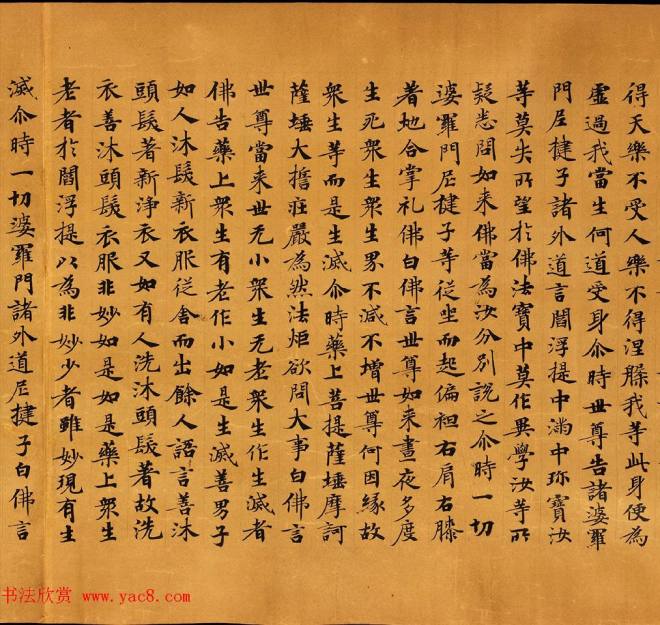 得天樂不受人樂不得涅槃我等此身便為
虛過我當生何道受身尒時世尊告諸婆羅
門尼揵子諸外道言閻浮提中滿中珎寶汝
等莫失所望於佛法寶中莫作異學汝等所
疑悉問如來佛當為汝分別說之尒時一切
婆羅門尼揵子等從坐而起偏袒右肩右膝
著地合掌礼佛白佛言世尊如来晝夜多度
生死衆生衆生界不減不增世尊何因緣故
衆生等而是生滅尒時藥上菩提薩埵摩訶
薩埵大擔㽵嚴為然法炬欲問大事白佛言
世尊當来世无小衆生无老衆生作生滅者
佛告藥上衆生有老作小如是生滅善男子
如人沐髮新衣服從舍而出餘人語言善沐
頭髮著新淨衣又如有人洗沐頭髮著故洗
衣善沐頭髮衣服非妙如是如是藥上衆生
老者於閻浮提以為非妙少者雖妙現有生
滅尒時一切婆羅門諸外道尼揵子白佛言
书法欣赏 www.yac8.com